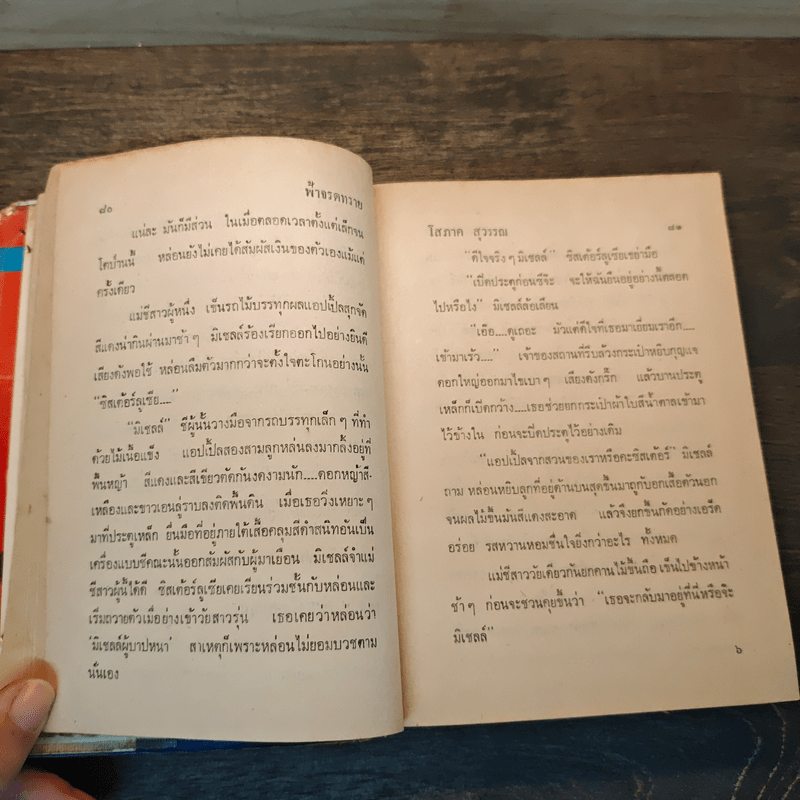 ๘๐ ฟ้าจรดทราย
แน่ละ มันก็มีส่วน ในเมื่อตลอดเวลาตั้งแต่เล็กจน
โตป่านนี้ หล่อนยังไม่เคยได้สัมผัสเงินของตัวเองแม้แต่
ครั้งเดียว
แม่ชีสาวผู้หนึ่ง เข็นรถไม้บรรทุกผลแอปเปิ้ลสุกจัด
สีแดงน่ากินผ่านมาช้า ๆ มิเชลล์ร้องเรียกออกไปอย่างยินดี
เสียงดังพอใช้ หล่อนลืมตัวมากกว่าจะตั้งใจตะโกนอย่างนั้น
“ซิสเต้อร์ลูเซีย....”
“มิเชลล์” ชีผู้นั้นวางมือจากรถบรรทุกเล็ก ๆ ที่ทำ
ด้วยไม้เนื้อแข็ง แอปเปิ้ลสองสามลูกหล่นลงมากลิ้งอยู่ที่
พื้นหญ้า สีแดงและสีเขียวตัดกันงดงามนัก....ดอกหญ้าสี-
เหลืองและขาวเอนลู่ราบลงติดพื้นดิน เมื่อเธอวิ่งเหยาะ ๆ
มาที่ประตูเหล็ก ยื่นมือที่อยู่ภายใต้เสื้อคลุมสีดำสนิทอันเป็น
เครื่องแบบชีคณะนั้นออกสัมผัสกับผู้มาเยือน มิเชลล์จำแม่
ชีสาวผู้นี้ได้ดี ซิสเต้อร์ลูเซียเคยเรียนร่วมชั้นกับหล่อนและ
เริ่มถวายตัวเมื่อย่างเข้าวัยสาวรุ่น เธอเคยว่าหล่อนว่า
‘มิเชลล์ผู้บาปหนา’ สาเหตุก็เพราะหล่อนไม่ยอมบวชตาม
นั่นเอง
โสภาค สุวรรณ ๘๑
“ดีใจจริง ๆ มิเชลล์” ซิสเต้อร์ลูเซียเขย่ามือ
“เปิดประตูก่อนซีจ๊ะ จะให้ฉันยืนอยู่อย่างนี้ตลอด
ไปหรือไง” มิเชลล์ล้อเลียน
“เอ้อ....ดูเถอะ มัวแต่ดีใจที่เธอมาเยี่ยมเราอีก....
เข้ามาเร็ว....” เจ้าของสถานที่รีบล้วงกระเป๋าหยิบกุญแจ
ดอกใหญ่ออกมาไขเบา ๆ เสียงดังกริ๊ก แล้วบานประตู
เหล็กก็เปิดกว้าง....เธอช่วยยกกระเป๋าผ้าใบสีน้ำตาลเข้ามา
ไว้ข้างใน ก่อนจะปิดประตูไว้อย่างเดิม
“แอปเปิ้ลจากสวนของเราหรือคะซิสเต้อร์” มิเชลล์
ถาม หล่อนหยิบลูกที่อยู่ด้านบนสุดขึ้นมาถูกับอกเสื้อตัวนอก
จนผลไม้ขึ้นมันสีแดงสะอาด แล้วจึงยกขึ้นกัดอย่างเอร็ด
อร่อย รสหวานหอมชื่นใจยิ่งกว่าอะไร ทั้งหมด
แม่ชีสาววัยเดียวกันยกคานไม้ขึ้นถือ เข็นไปข้างหน้า
ช้า ๆ ก่อนจะชวนคุยขึ้นว่า “เธอจะกลับมาอยู่ที่นี่หรือจ๊ะ
มิเชลล์”
๖